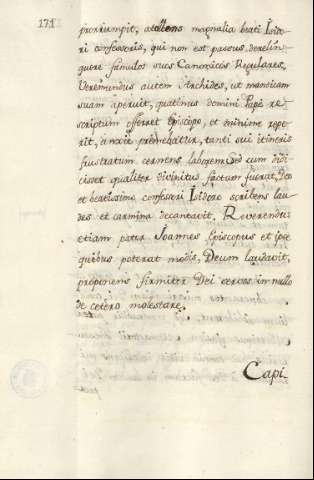 171
prorrumpit, atollens magnalia beati Isido-
ri confessoris, qui non est passus derelin-
quere famulos suos Canonicos Regulares.
Veremundus autem Archides, ut mentium
suam aperuit, quatenus domini Papæ re-
scriptum offerret Episcopo, et minime repe-
rit, anxie premebatur, tanti sui itineris
frustratum cernens laborem sed cum didi-
cisset qualiter divinitus factum fuerat, deo
et beatissimo confessori Isidoro scribens lau-
des et carmina decantavit. Reverendus
etiam pater Joannes Episcopus et ipse
quibus poterat modis, Deum laudavit,
proponens firmiter Dei servos in nullo
de cetero molestare.
Capi-